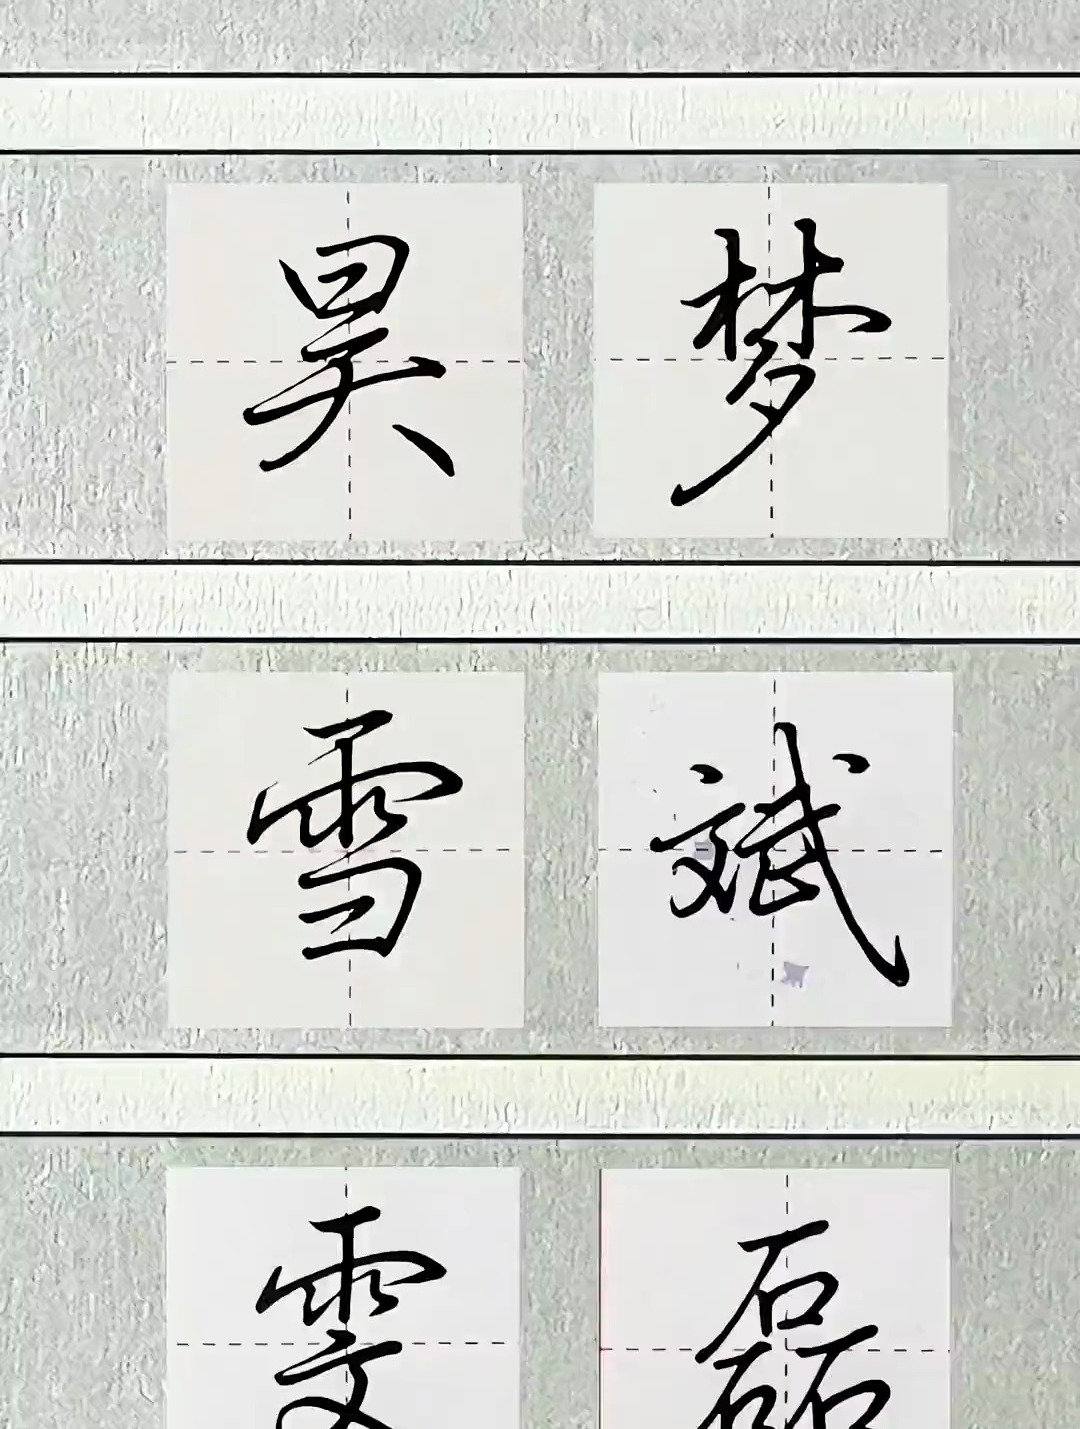 昊 梦
雪 斌
雯 磊